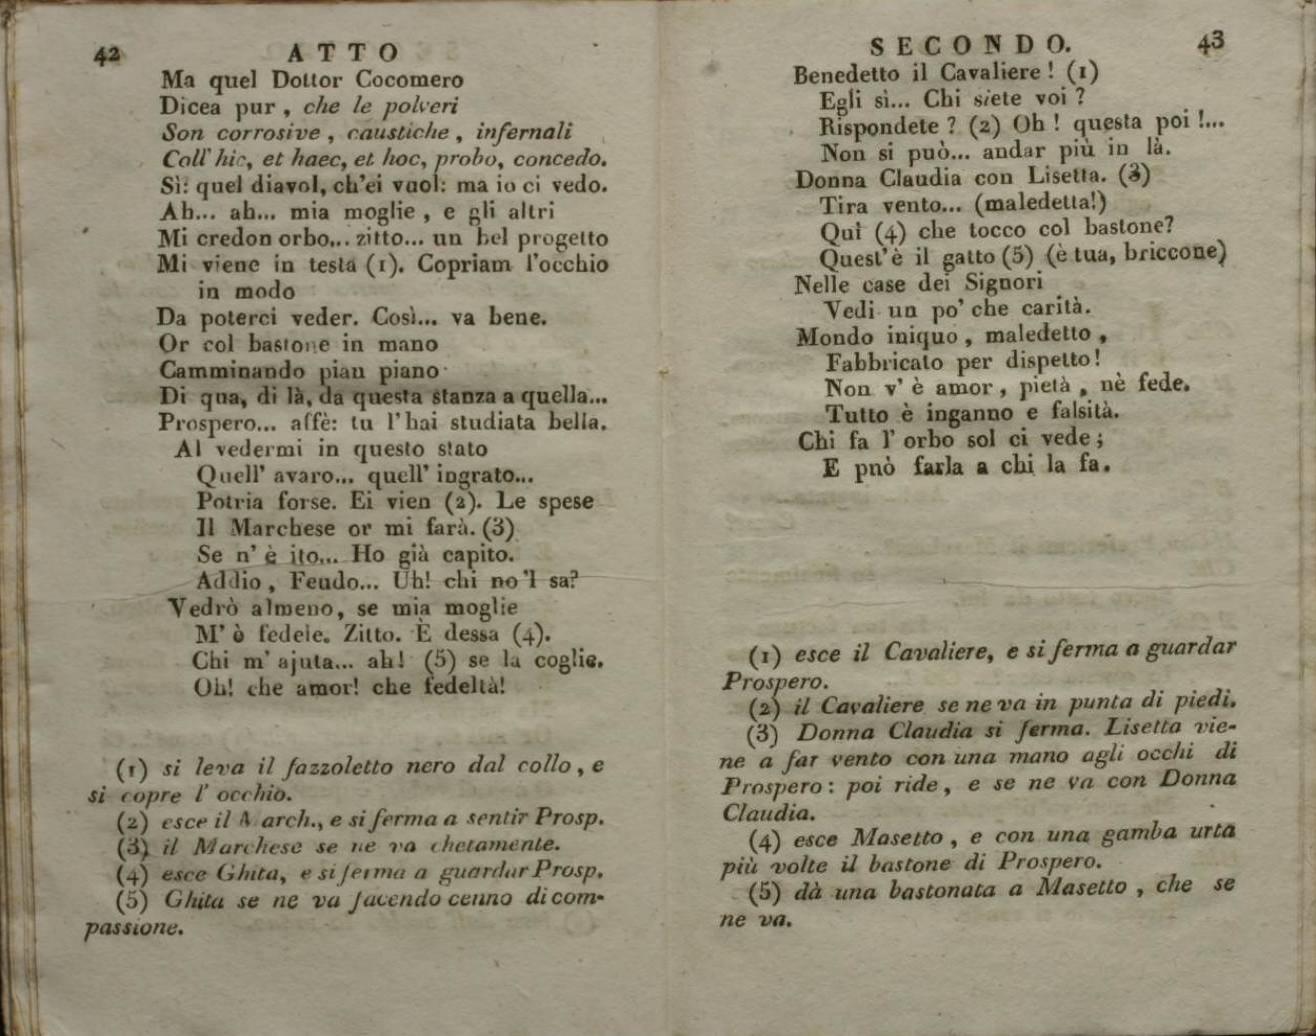 42 ATTO
Ma quel Dottor Cocomero
Dicea pur , che le polveri
Son corrosive , caustiche , infernali
Coll' hic, et haec, et hoc, probo, concedo.
Sì: quel diavol, ch'ei vuol: ma io ci vedo.
Ah... ah... mia moglie , e gli altri
Mi credon orbo... zitto... un bel progetto
Mi viene in testa (1). Copriam l'occhio
in modo
Da poterci veder. Così... va bene.
Or col bastone in mano
Camminando pian piano
Di qua, di là, da questa stanza a quella...
Prospero... affè: tu l'hai studiata bella.
Al vedermi in questo stato
Quell' avaro... quell' ingrato...
Potria forse. Ei vien (2). Le spese
Il Marchese or mi farà. (3)
Se n' è ito... Ho già capito.
Addio , Feudo... Uh! chi no 'l sa?
Vedrò almeno, se mia moglie
M' è fedele. Zitto. È dessa (4).
Chi m' ajuta... ah! (5) se la coglie.
Oh! che amor! che fedeltà!
(1) si leva il fazzoletto nero dal collo , e
si copre l' occhio.
(2) esce il March., e si ferma a sentir Prosp.
(3) il Marchese se ne va chetamente.
(4) esce Ghita, e si ferma a guardar Prosp.
(5) Ghita se ne va facendo cenno di com-
passione.
SECONDO. 43
Benedetto il Cavaliere ! (1)
Egli sì... Chi siete voi ?
Rispondete ? (2) Oh ! questa poi !...
Non si può... andar più in là.
Donna Claudia con Lisetta. (3)
Tira vento... (maledetta!)
Quì (4) che tocco col bastone?
Quest'è il gatto (5) (è tua, briccone)
Nelle case dei Signori
Vedi un po' che carità.
Mondo iniquo , maledetto ,
Fabbricato per dispetto !
Non v' è amor , pietà , nè fede.
Tutto è inganno e falsità.
Chi fa l' orbo sol ci vede ;
E può farla a chi la fa.
(1) esce il Cavaliere, e si ferma a guardar
Prospero.
(2) il Cavaliere se ne va in punta di piedi.
(3) Donna Claudia si ferma. Lisetta vie-
ne a far vento con una mano agli occhi di
Prospero : poi ride , e se ne va con Donna
Claudia.
(4) esce Masetto , e con una gamba urta
più volte il bastone di Prospero.
(5) dà una bastonata a Masetto , che se
ne va.